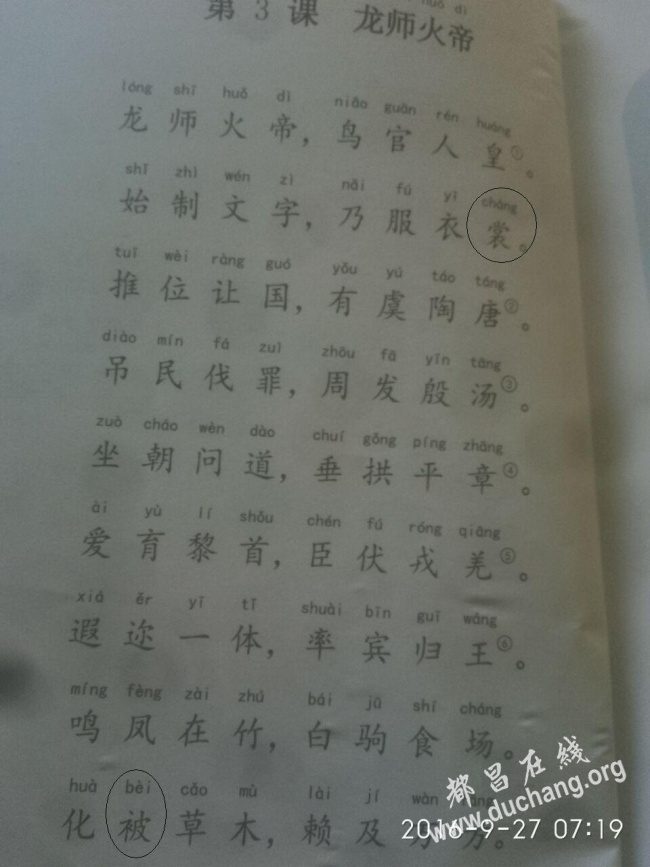 huǒ dì
第 3 课 龙师火帝
lóng shī huǒ dì niǎo guān rén huáng
龙师火帝，鸟官人皇①。
shǐ zhì wén zì nǎi fú yī cháng
始制文字，乃服衣裳。
tuī wèi ràng guó yǒu yú táo táng
推位让国，有虞陶唐②。
diào mín fá zuì zhōu fā yīn tāng
吊民伐罪，周发殷汤③。
zuò cháo wèn dào chuí gǒng píng zhāng
坐朝问道，垂拱平章④。
ài yù lí shǒu chén fú róng qiāng
爱育黎首，臣伏戎羌⑤。
xiá ěr yī tǐ shuài bīn guī wáng
遐迩一体，率宾归王⑥。
míng fèng zài zhú bái jū shí cháng
鸣凤在竹，白驹食场。
huà bèi cǎo mù lài jí wàn
化被草木，赖及万方。
都昌在线
www.duchang.org
2016-9-27 07:19